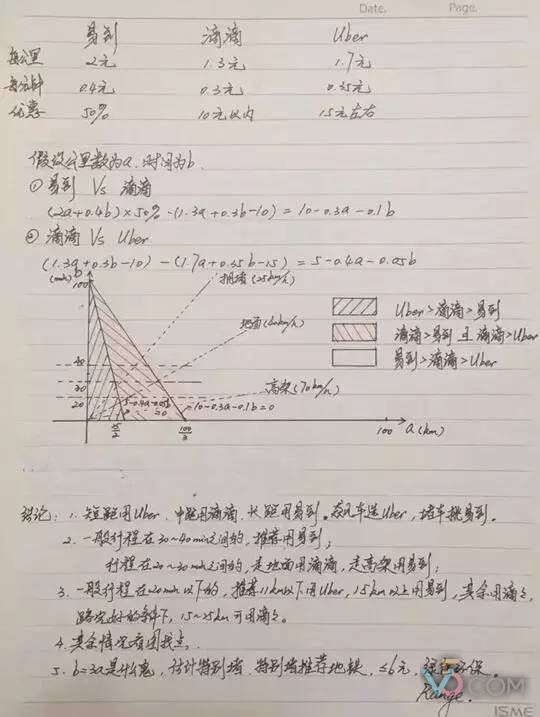 Date. Page.
易到 滴滴 Uber
每公里 2元 1.3元 1.7元
每分钟 0.4元 0.3元 0.35元
优惠 50% 10元以内 15元左右
假设公里数为a.时间为b.
① 易到 Vs 滴滴
(2a+0.4b)×50%-(1.3a+0.3b-10)=10-0.3a-0.1b
② 滴滴 Vs Uber
(1.3a+0.3b-10)-(1.7a+0.35b-15)=5-0.4a-0.05b
(min) b
100
拥堵(25km/h)
地面(40km/h)
高架(70km/h)
40
30
20
5-0.4a-0.05b=0
10-0.3a-0.1b=0
25/2
100/3
100
a(km)
Uber>滴滴>易到
滴滴>易到 且 滴滴>Uber
易到>滴滴>Uber
结论: 1. 短距用Uber. 中距用滴滴. 长距用易到. 兜风车选Uber, 堵车挑易到.
2. 一般行程在30~40min之间的, 推荐用易到;
行程在20~30min之间的, 走地面用滴滴, 走高架用易到;
3. 一般行程在20min以下的, 推荐11km以下用Uber, 15km以上用易到, 其余用滴滴.
路况好的条件下, 15~25km可用滴滴.
4. 其余情况看图找点.
5. b=3a是什么鬼, 估计特别堵. 特别堵推荐地铁, ≤6元, 绿色环保.
Range.
V5.COM
ISME